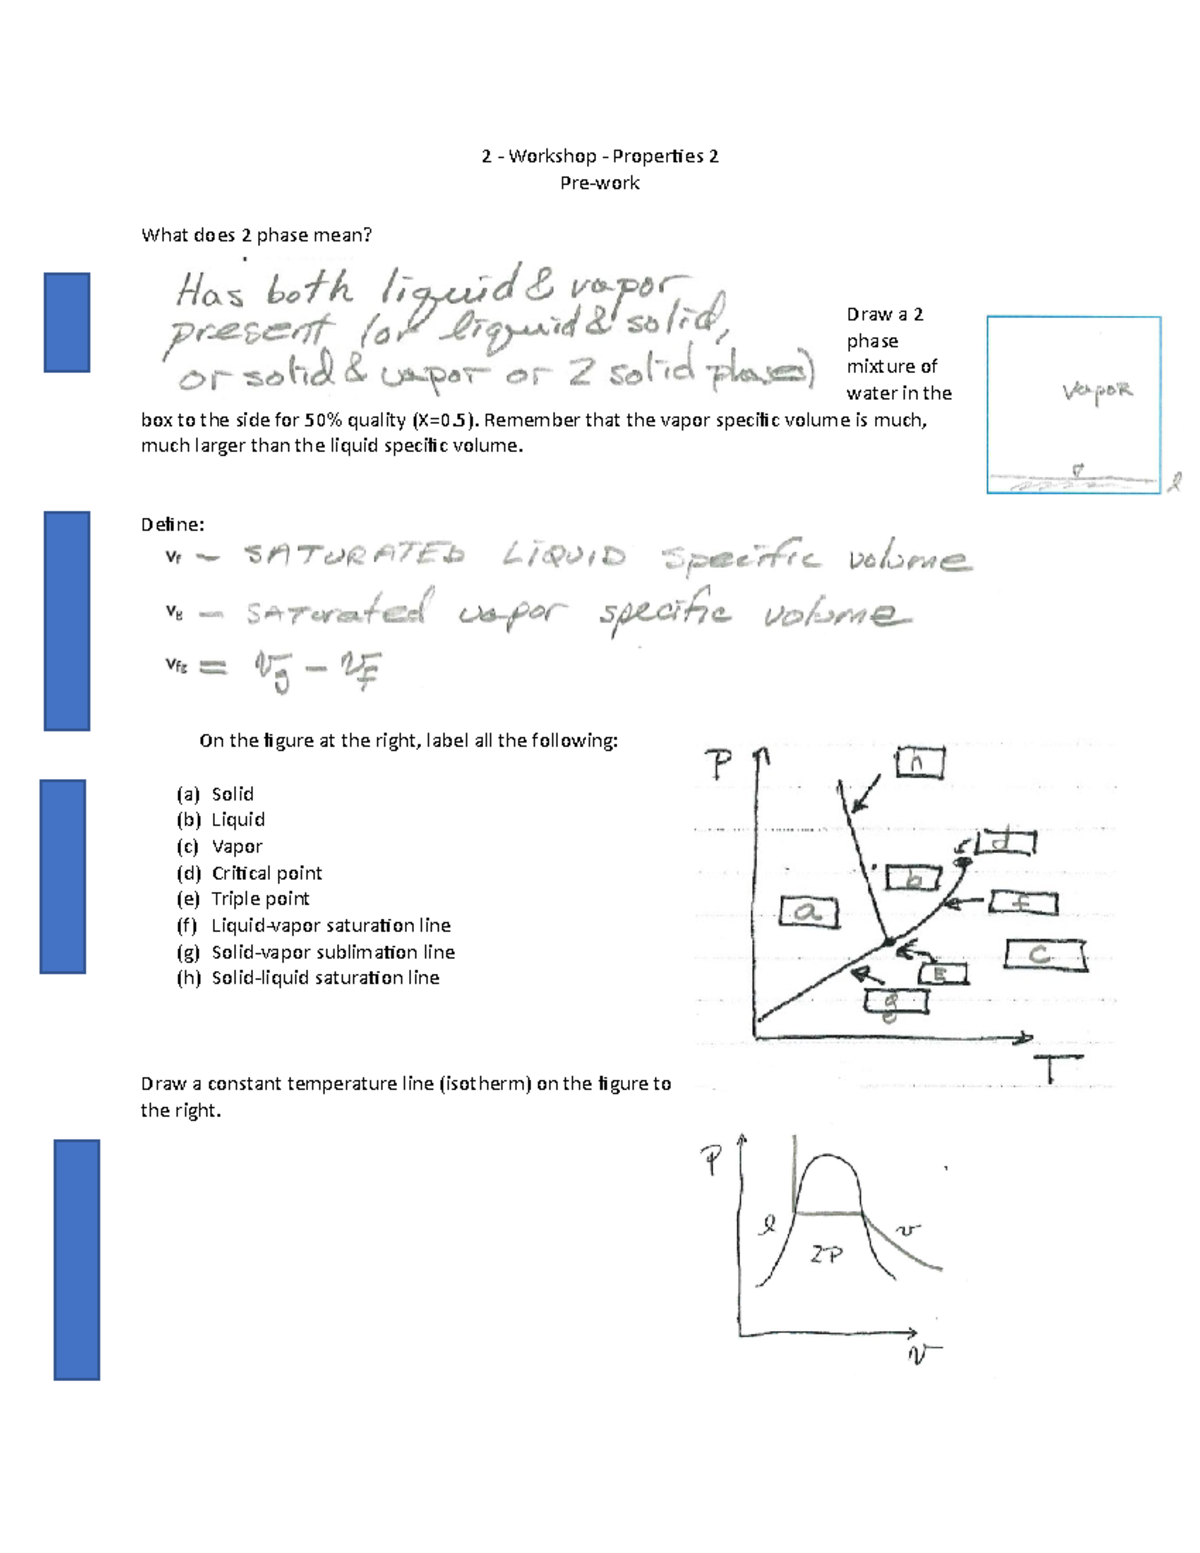 2 - Workshop - Properties 2
Pre-work
What does 2 phase mean?
Has both liquid & vapor
present (or liquid & solid,
or solid & vapor or 2 solid phases)
Draw a 2
phase
mixture of
water in the
box to the side for 50% quality (X=0.5). Remember that the vapor specific volume is much,
much larger than the liquid specific volume.
vapor
l
Define:
vf – SATURATED LIQUID specific volume
vg – SATurated vapor specific volume
vfg = vg – vf
On the figure at the right, label all the following:
(a) Solid
(b) Liquid
(c) Vapor
(d) Critical point
(e) Triple point
(f) Liquid-vapor saturation line
(g) Solid-vapor sublimation line
(h) Solid-liquid saturation line
P
h
d
b
a
f
c
E
g
T
Draw a constant temperature line (isotherm) on the figure to
the right.
P
l
v
2P
v